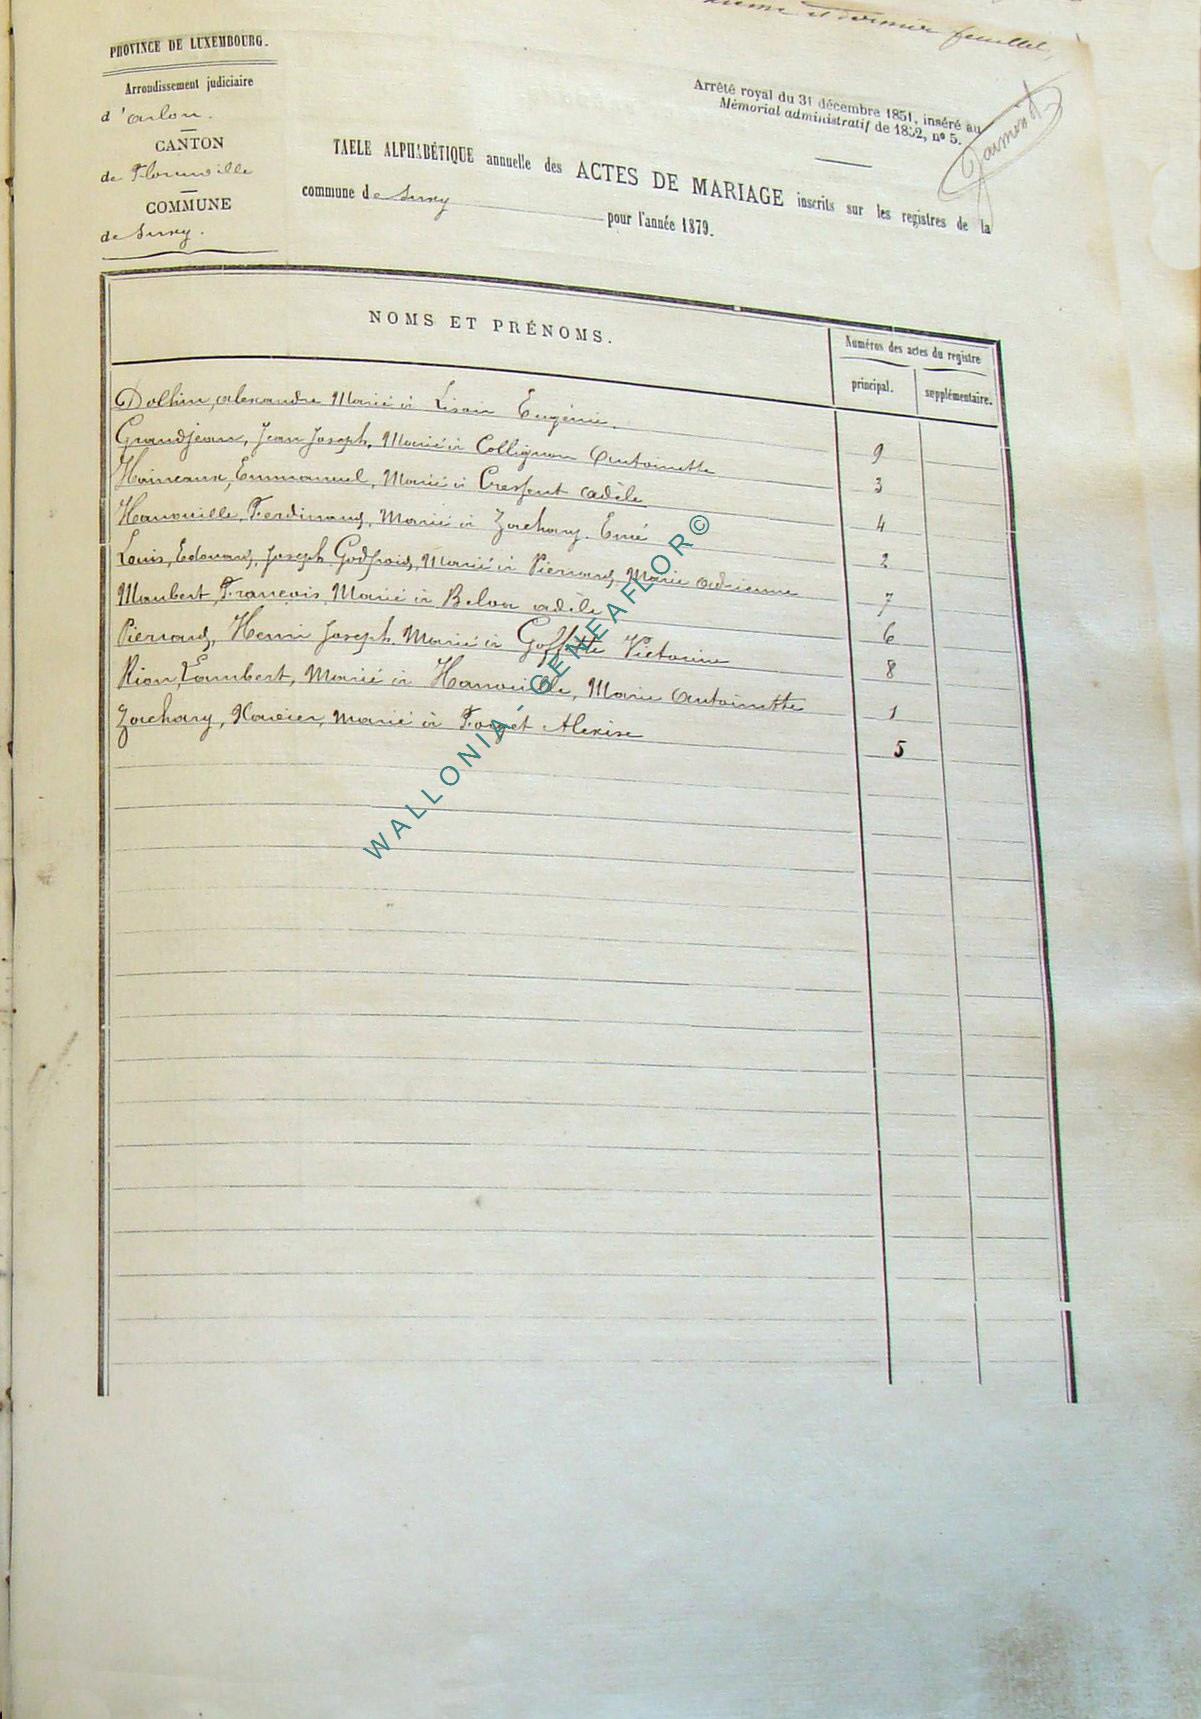 et dernier feuillet,
PROVINCE DE LUXEMBOURG.
Arrondissement judiciaire
d'arlon.
CANTON
de Florenville
COMMUNE
de Suxy.
Arrêté royal du 31 décembre 1851, inséré au
Mémorial administratif de 1852, nº 5.
TABLE ALPHABÉTIQUE annuelle des ACTES DE MARIAGE inscrits sur les registres de la
commune de Suxy pour l'année 1879.
NOMS ET PRÉNOMS.
Numéros des actes du registre
principal.
supplémentaire.
Dolhin, alexandre Marié à Lisoir Eugénie. 9
Grandjean, Jean Joseph, Marié à Collignon Antoinette 3
Haineaux, Emmanuel, Marié à Cresfent adèle 4
Hanouille, Ferdinand, Marié à Zachary. Emé 2
Louis, Edouard, Joseph Godfroid, Marié à Pierrard, Marie adrienne 7
Maubert, François, Marié à Belva adèle 6
Pierrard, Henri Joseph. Marié à Goffette Victorine 8
Rion, Lambert, Marié à Hanouille, Marie Antoinette 1
Zachary, Xavier, Marié à Forget Alexise 5
WALLONIA - GENEAFLOR©